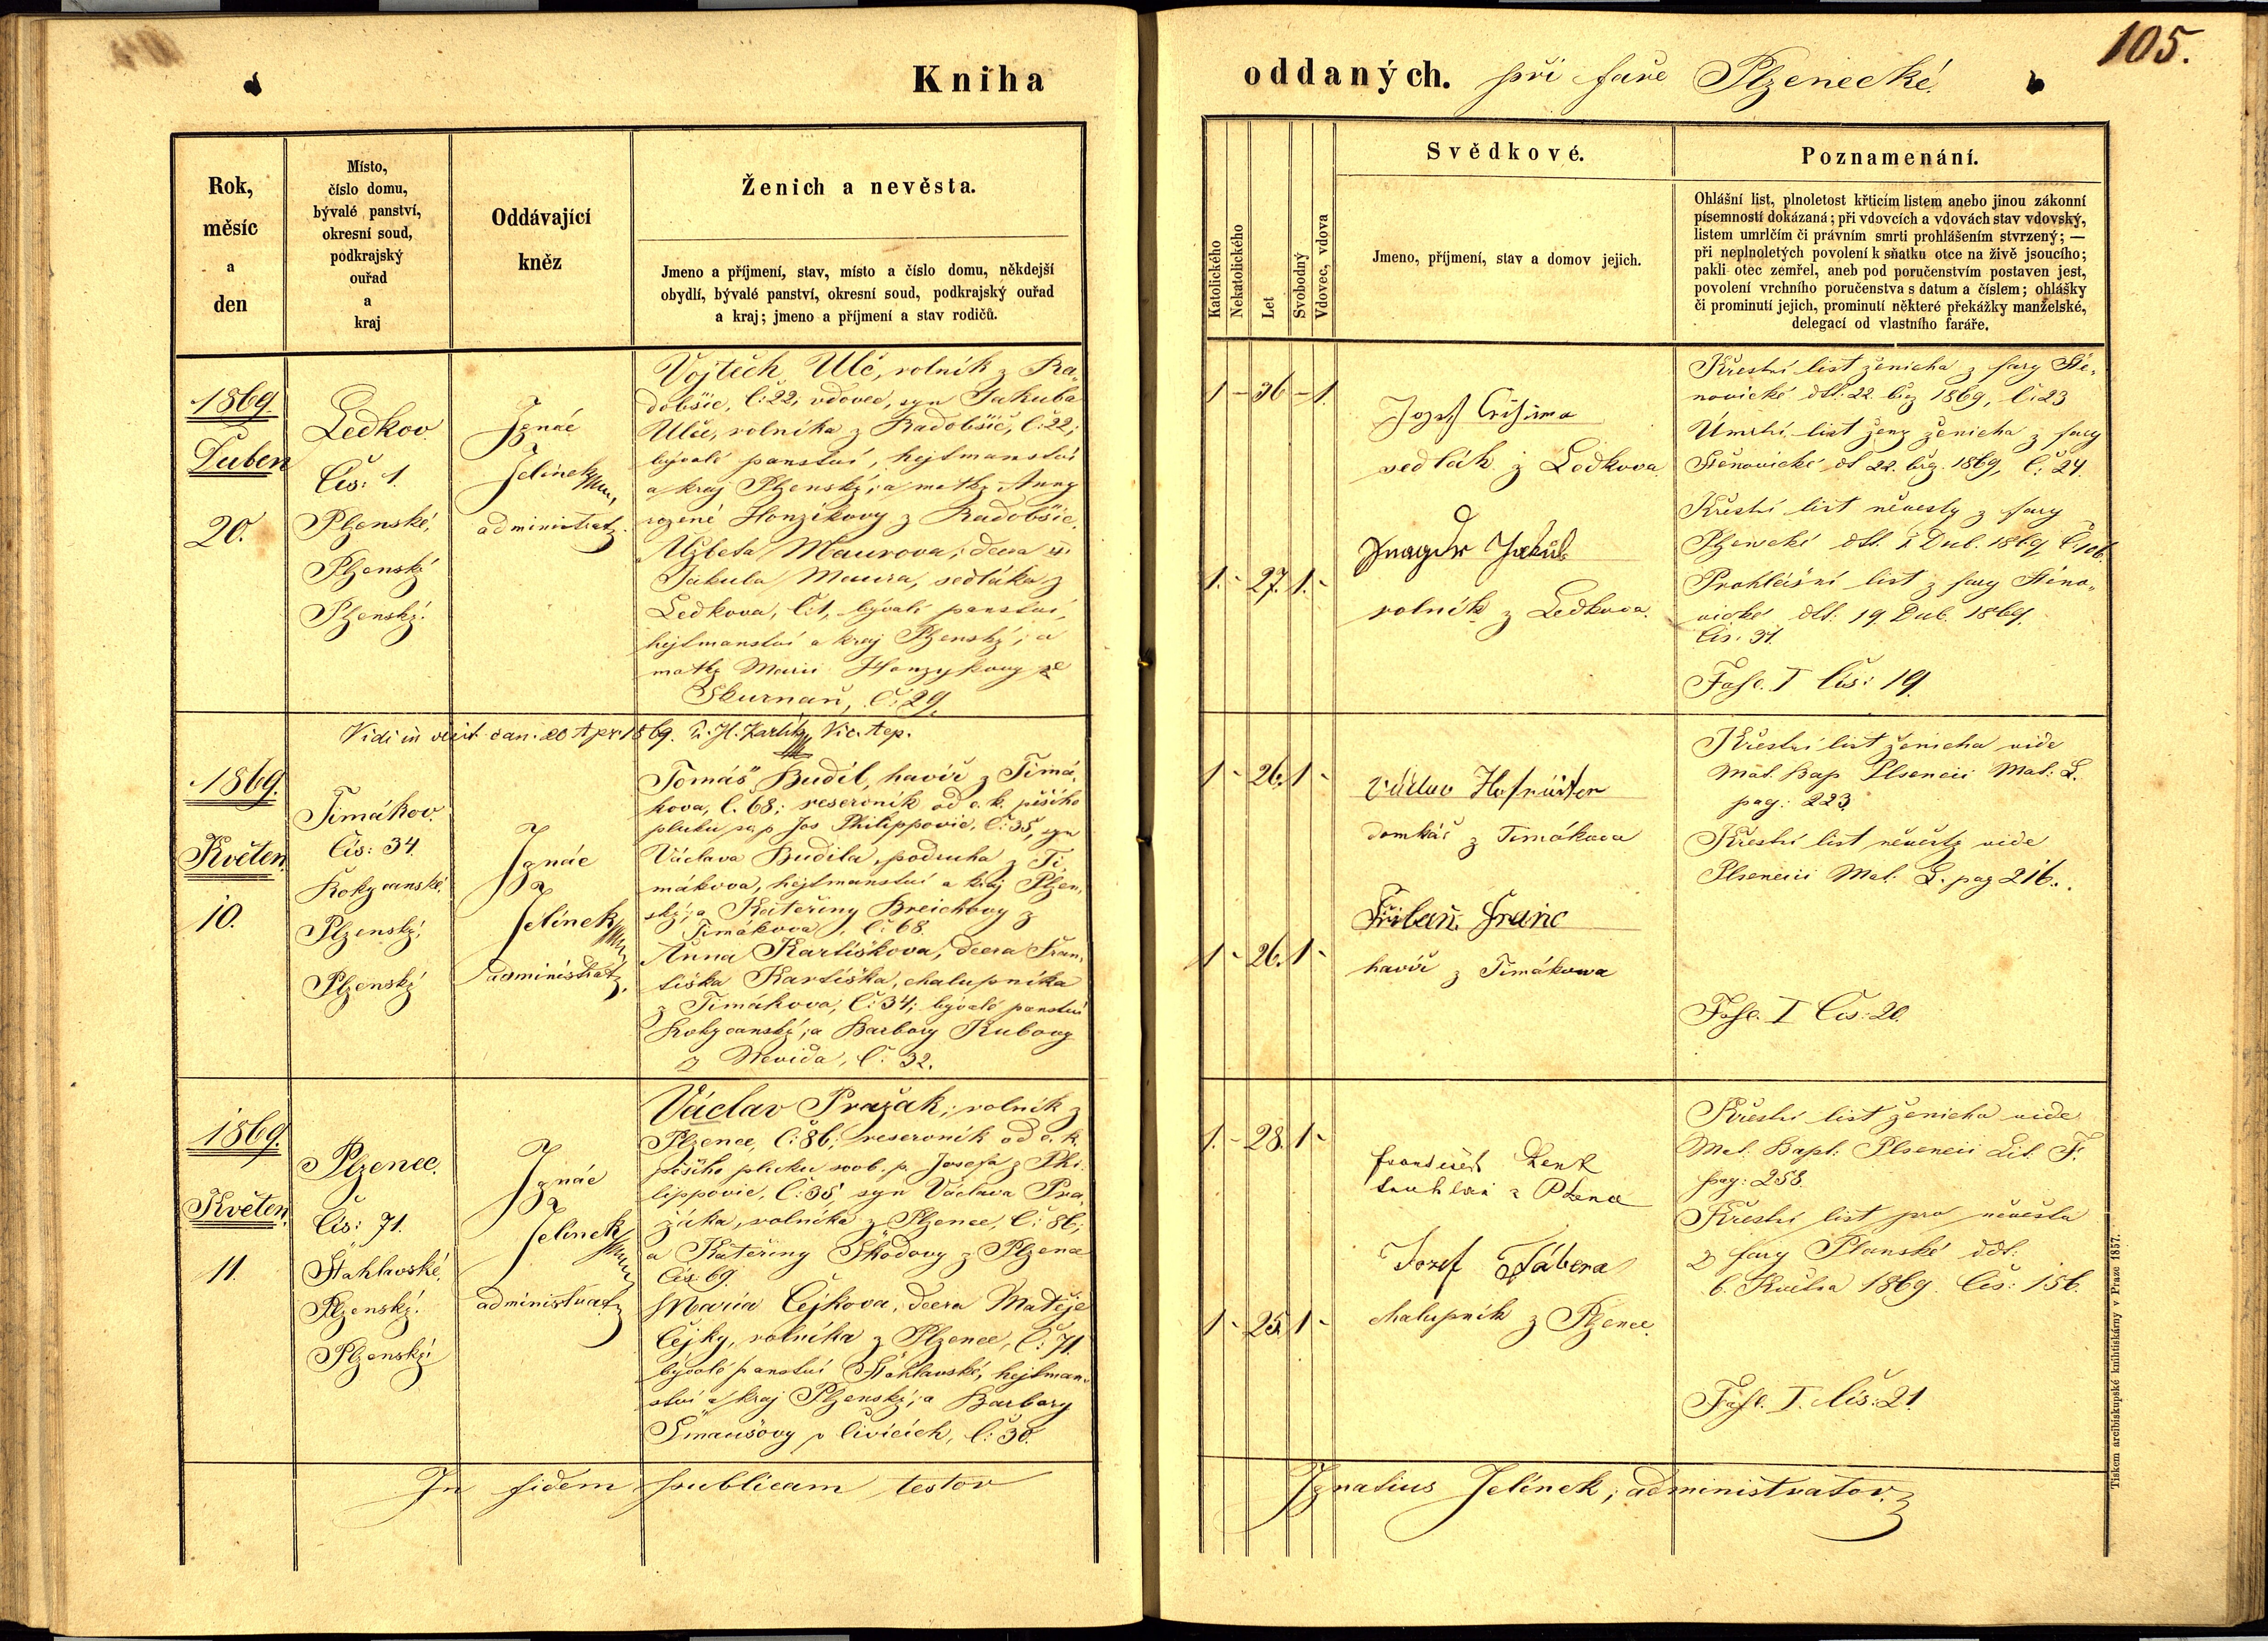 Kniha
oddaných. při faře Plzenecké.
105.
Rok,
měsíc
a
den
Místo,
číslo domu,
bývalé panství,
okresní soud,
podkrajský
ouřad
a
kraj
Oddávající
kněz
Ženich a nevěsta.
Jmeno a příjmení, stav, místo a číslo domu, někdejší
obydlí, bývalé panství, okresní soud, podkrajský ouřad
a kraj; jmeno a příjmení a stav rodičů.
Katolického
Nekatolického
Let
Svobodný
Vdovec, vdova
Svědkové.
Jmeno, příjmení, stav a domov jejich.
Poznamenání.
Ohlášní list, plnoletost křticím listem anebo jinou zákonní
písemností dokázaná; při vdovcích a vdovách stav vdovský,
listem umrlčím či právním smrti prohlášením stvrzený; —
při neplnoletých povolení k sňatku otce na živě jsoucího;
pakli otec zemřel, aneb pod poručenstvím postaven jest,
povolení vrchního poručenstva s datum a číslem; ohlášky
či prominutí jejich, prominutí některé překážky manželské,
delegací od vlastního faráře.
1869
Duben
20.
Ledkov.
Čís: 1.
Plzenské,
Plzenský
Plzenský.
Ignác
Jelínek
administrat.
Vojtěch Ulč, rolník z Ra„
dobšic, č: 22, vdovec, syn Jakuba
Ulče, rolníka z Radobšic, č: 22;
bývalé panství, hejtmanství
a kraj Plzenský; a matky Anny
rozené Honzíkovy z Radobšic.
Alžbeta Maurova, dcera
Jakuba Maura, sedláka z
Ledkova, č: 1, bývalé panství,
hejtmanství a kraj Plzenský; a
matky Marie Honzykovy ze
Skurňan, č: 29.
1 - 36 - 1.
1. - 27. 1. -
Jozef
sedlák z Ledkova
Jakub
rolník z Ledkova.
Křestní list ženicha z fary Stě„
novické ddt: 22. břez 1869, č: 23
Úmrtní list ženy ženicha z fary
Stěnovické dt 22. břz. 1869, č: 24.
Křestní list něvesty z fary
Plzenecké ddt. Dub. 1869 č: 106.
Prohlášní list z fary Stěno„
vické ddt: 19. Dub. 1869.
Čís. 31.
Fasc. I Čís: 19.
Vidi in visit. can. 20 Apr 1869.
1869.
Květen
10.
Timákov.
Čís: 34.
Rokycanské,
Plzenský.
Plzenský
Ignác
Jelínek
administrat.
Tomáš Budil, havíř z Timá„
kova, č. 68; reservník od c. k. pěšího
pluku sv. p Jos Philippovic, č: 35, syn
Václava Budila, podruha z Ti
mákova, hejtmanství a kraj Plzen„
ský; a Kateřiny Breichovy z
Timákova, č: 68.
Anna Kartiškova, dcera Fran„
tiška Kartiška, chalupníka
z Timákova, č: 34; bývalé panství
Rokycanské; a Barbory Kubovy
z Mevida, č: 32.
1 - 26. 1 -
1 - 26. 1 -
Václav
domkář z Timákova
Franc
havíř z Timákowa
Křestní list ženicha vide
Mat. Bap Plsencii Mat: L.
pag: 223
Křestní list něvěsty vide
Plsencii Mat. L. pag 216..
Fasc. I Čís: 20.
1869.
Květen.
11.
Plzenec.
Čís: 71.
Štáhlavské,
Plzenský.
Plzenský.
Ignác
Jelínek
administrat
Václav Pražak; rolník z
Plzence, č: 86; reservník od c. k.
pěšího pluku svob. p. Josefa z Phi„
lippovic, č: 35, syn Václava Pra„
žáka, rolníka z Plzence, č: 86;
a Kateřiny Škodovy z Plzence
čís. 69.
Maria Čejkova, dcera Matěje
Čejky, rolníka z Plzence, č: 71.
bývalé panství Štáhlavské, hejtman„
ství a kraj Plzenský; a Barbory
Šmausovy v Čivicích, č: 30.
1. - 28. 1 -
1 - 25. 1 -
Jozef Tábera
chalupník z Plzence.
Křestní list ženicha vide
Mat. Bapt. Plsencii Lit. F.
pag: 258.
Křestní list pro něvěsta
z fary Planské ddt:
6. Května 1869. Čís: 156.
Fasc. I. Čís: 21.
In fidem publicam testor
Ignatius Jelínek, administrator.
Tiskem arcibiskupské knihtiskárny v Praze 1857.